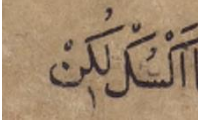 اَكْسُكْلُكِنْ